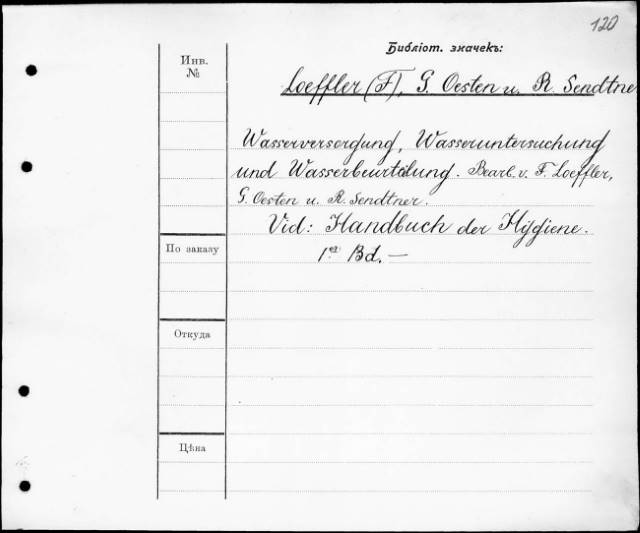 120
Библіот. значекъ:
Инв.
№
Loeffler (F), G. Oesten u. R. Sendtner
Wasserversorgung, Wasseruntersuchung
und Wasserbeurteilung. Bearb. v. F. Loeffler,
G. Oesten u. R. Sendtner.
Vid: Handbuch der Hygiene.
По заказу
1er Bd. —
Откуда
Цѣна